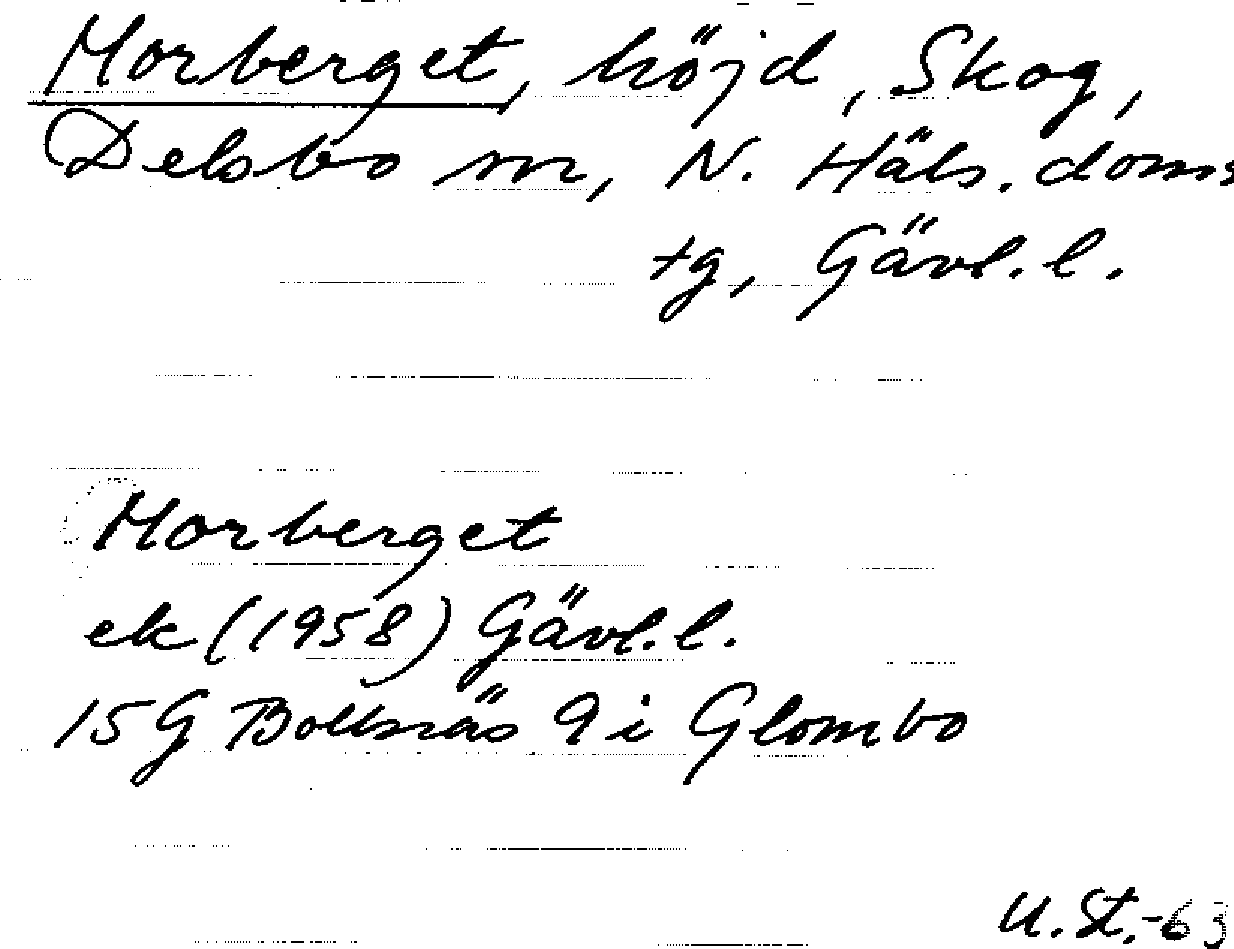 Morberget, höjd, Skog,
Delsbo sn, N. Häls. doms
tg, Gävl. l.
Morberget
ek (1958) Gävl. l.
15G Bollnäs 9i Glombo
U. St. -63